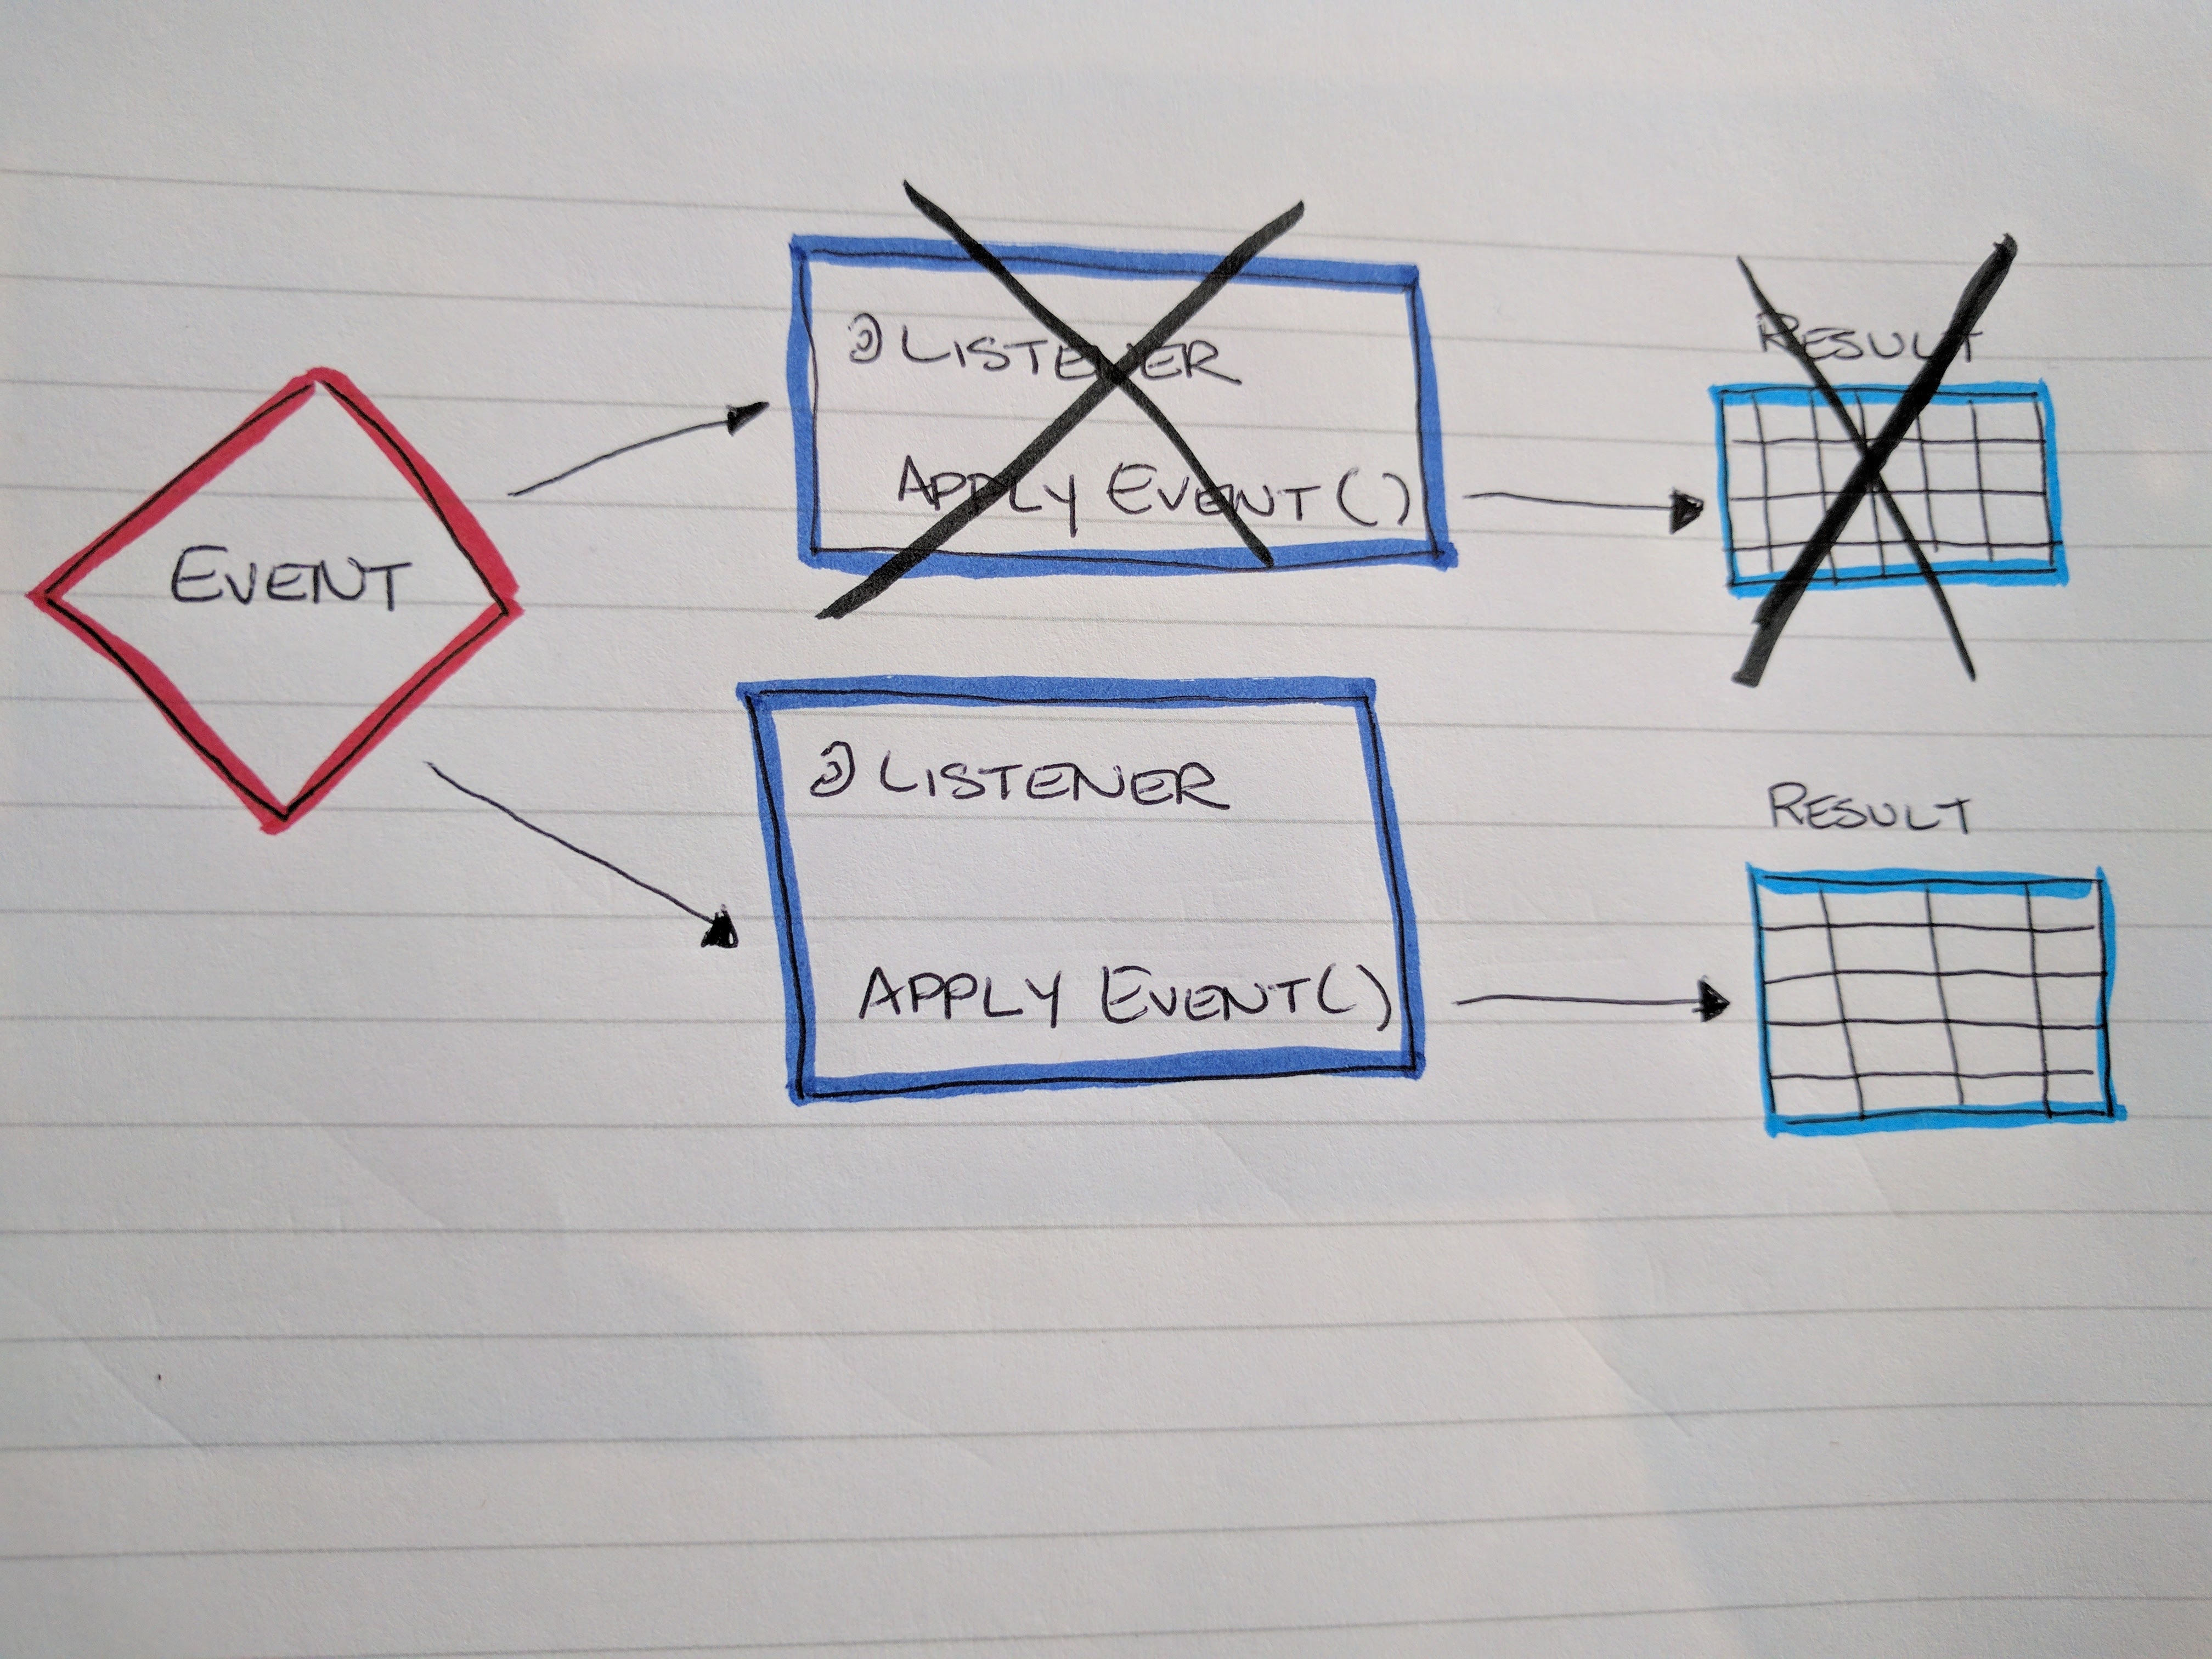 EVENT
@LISTENER
APPLY EVENT()
RESULT
@LISTENER
APPLY EVENT()
RESULT